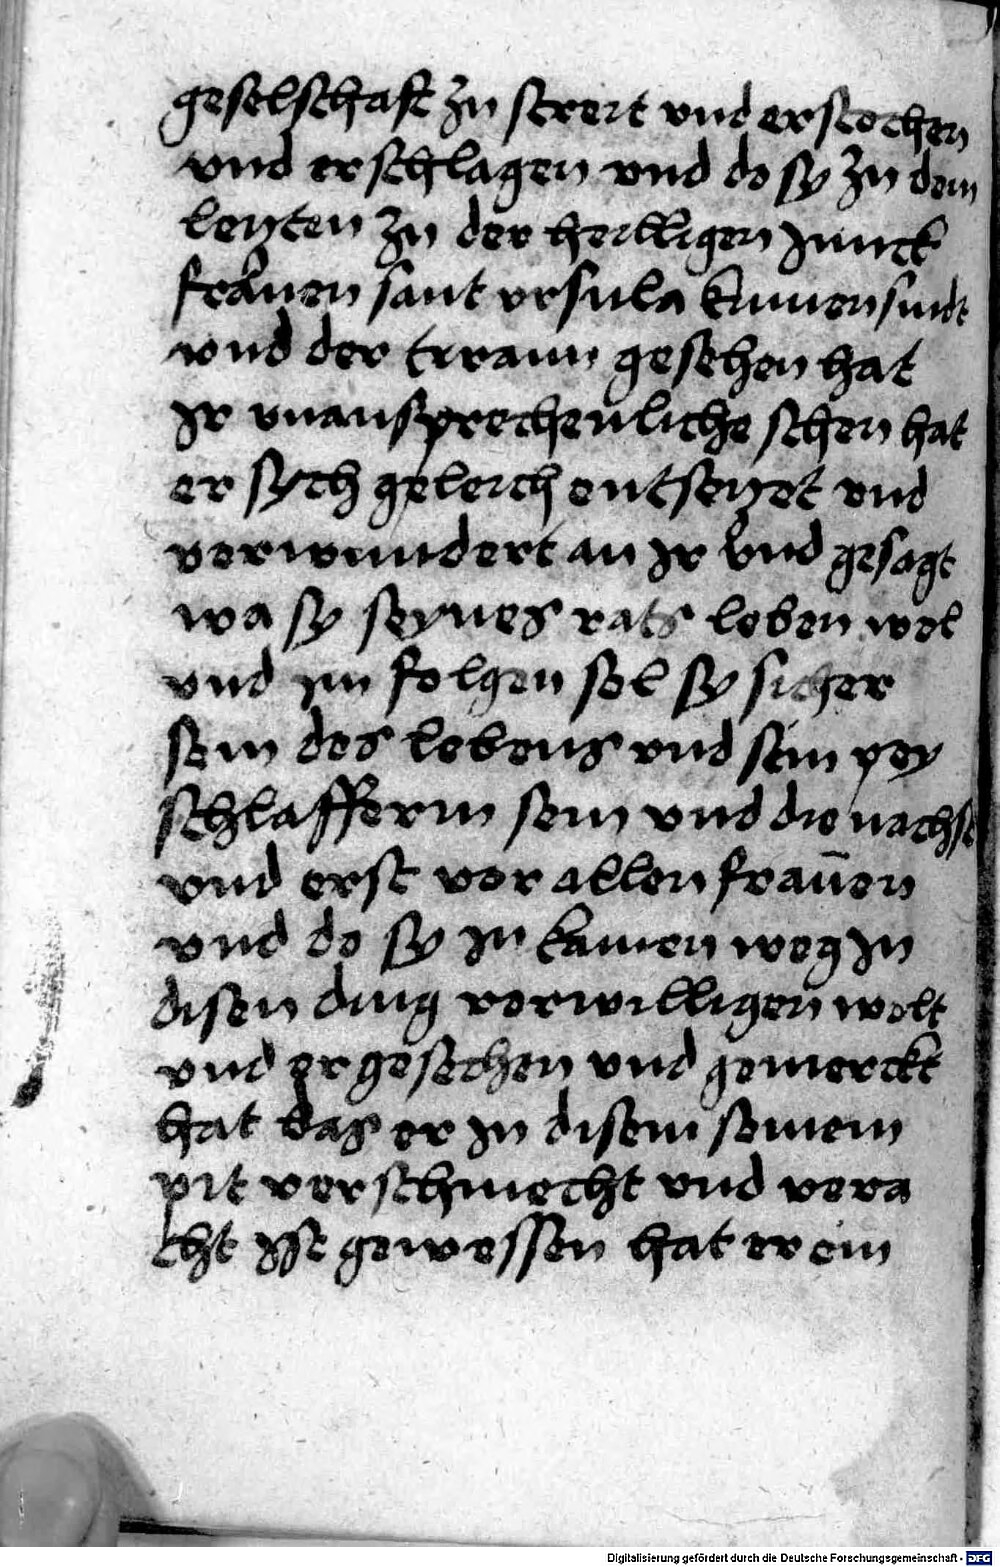 geselschaft zu streit vnd erstochen
vnd erschlagen vnd do sy zu dem
leczten zu der heilligen Junck
frauen sant vrsula kumen sindt
vnd der tirann gesehen hat
Ir vnausprechenliche schen hat
er sych geleich entseczet vnd
verwundert an Ir vnd gesagt
wa sy seynes rats leben wel
vnd im folgen sol sy sicher
sein des lebens vnd sein pey
schlafferin sein vnd die nachst
vnd erst vor allen frauen
vnd do sy In kainen weg In
disen ding verwilligen wolt
vnd er gesechen vnd gemerckt
hat das er In disem seinem
pit verschmecht vnd vera
cht Ist gewessen hat er ein
Digitalisierung gefördert durch die Deutsche Forschungsgemeinschaft - DFG